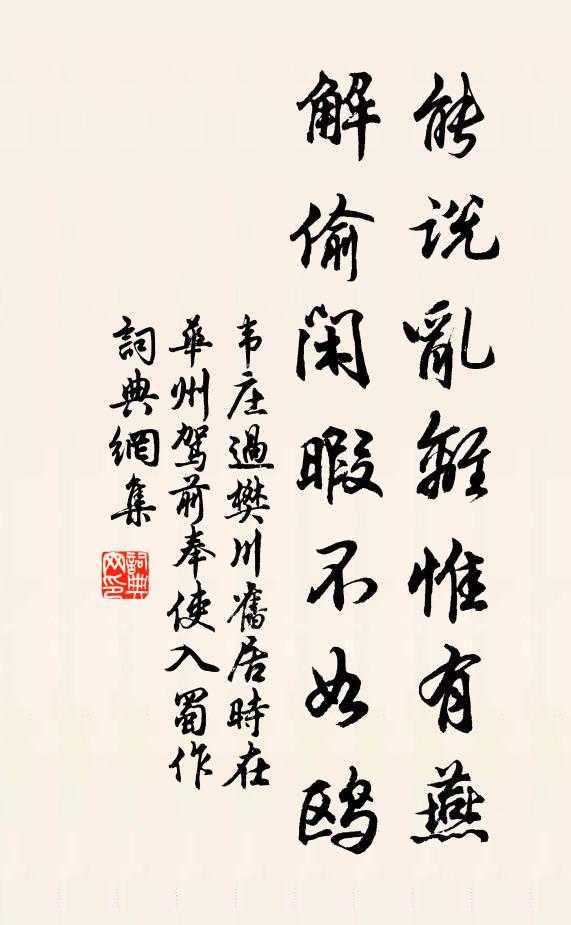 能说亂離惟有燕
解偷閑暇不如鸥
韦庄過樊川舊居時在
華州駕前奉使入蜀作
詞典網集
詞典
网印